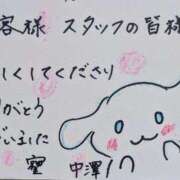 客様 スタッフの皆様
しくしてくださり
りがとう
ざいました
中澤